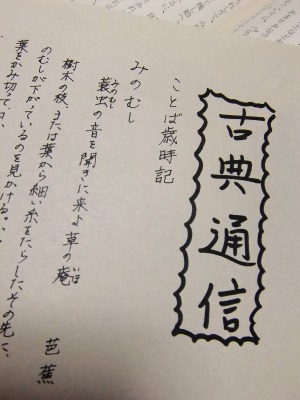 古典通信
ことば歳時記
みのむし
蓑虫の音を聞きに来よ草の庵 芭蕉
樹木の枝、または葉から細い糸をたらしたその先に、
のむしが下がっているのを見かける。
葉をかみ切って